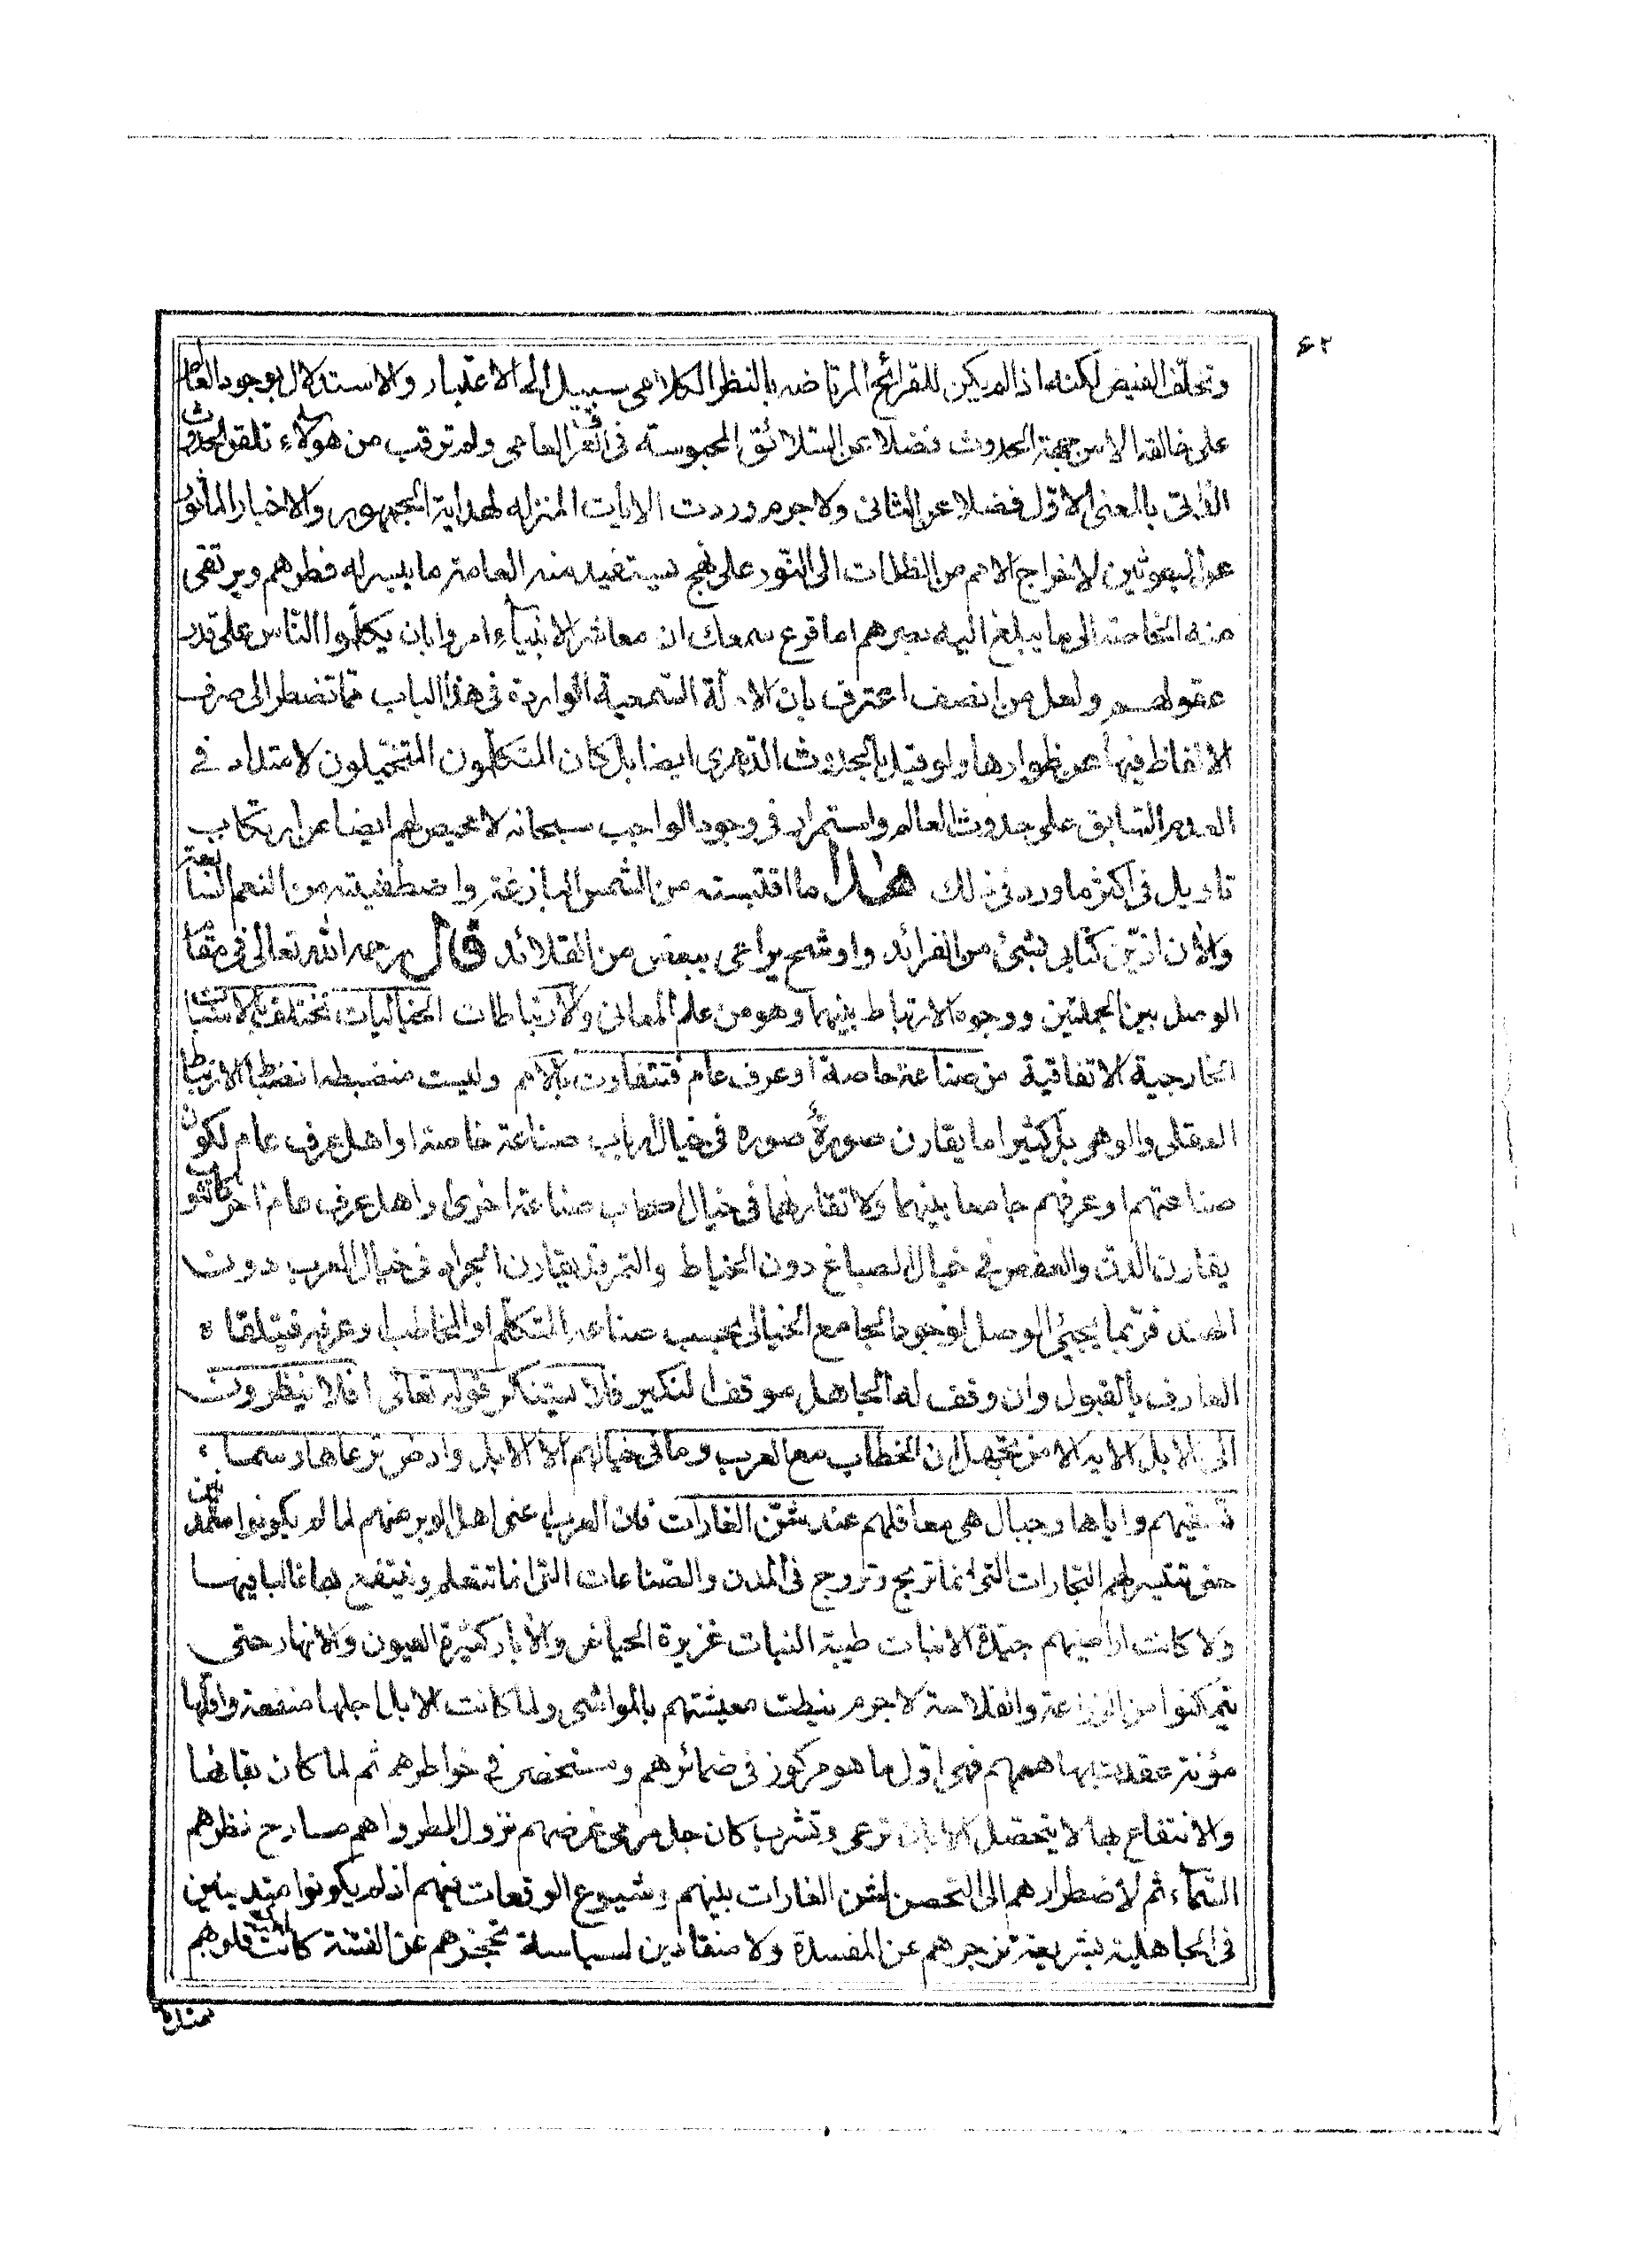 ٤٢
وتخلّف الفيض لكنه اذا لم يكن للقرائح المرتاضه بالنظر الكلامى سبيل الى الاعتبار والاستدلال بوجود العالم
على خالقه الا من جهة الحدوث فضلا عن السلائق المحبوسة فى العامى ولم ترقب من هؤلاء تلقى الحدوث
الذاتى بالمعنى الاوّل فضلا عن الثانى ولا جرم وردت الايات المنزله لهداية الجمهور والاخبار المأثور
عن المبعوثين لاخراج الامم من الظلمات الى النّور على نهج يستفيد منه العامة ما يسر له فطرهم ويرتقى
منه الخاصة الى ما يبلغ اليه بصرهم اما قرع سمعك ان معاشر الانبياء امروا بان يكلّموا النّاس على قدر
عقولهم ولعل من انصف اعترف بان الادلة السّمعية الواردة فى هذا الباب ممّا تضطر الى صرف
الالفاظ فيها عن ظواهرها ولو قيل بالحدوث الدّهرى ايضا بل كان المتكلّمون المتخيّلون لامتداد فى
العدم السّابق على حدوث العالم واستمرار فى وجود الواجب سبحانه لا محيص لهم ايضا عن ارتكاب
تاويل فى اكثر ما ورد فى ذلك هذا ما اقتبسته من الشّمس البازغة واصطفيته من النعم السّابغة
والان ازيّن كتابى بشىء من الفرائد واوشح يراعى ببعض من القلائد قال رحمه الله تعالى فى مقام
الوصل بين الجملتين ووجوه الارتباط بينهما وهو من علم المعانى والارتباطات الخياليات تختلف بالاسباب
الخارجية الاتفاقية من صناعة خاصة او عرف عام فتتفاوت بالامم وليست منضبطه انضباط الارتباط
العقلى والوهمى بل كثيرا ما يقارن صورةٌ صورة فى خيال ارباب صناعة خاصة او اهل عرف عام لكون
صناعتهم او عرفهم جامعا بينهما ولا تقارنها فى خيال اصحاب صناعة اخرى او اهل عرف عام اخر
يقارن الدن والعفص فى خيال الصباغ دون الخياط والتمر قد يقارن الجراد فى خيال العرب دون
الهند فربّما يجىء الوصل لوجود الجامع الخيالى بحسب صناعة المتكلّم او المخاطب او عرفه فيتلقاه
العارف بالقبول وان وقف له الجاهل موقف النكير فلا يستنكر قوله تعالى افلا ينظرون
الى الابل الايه الا من يجهل ان الخطاب مع العرب وما فى خيالهم الا الابل وارض ترعاها وسماء
تسقيهم واياها وجبال هى معاقلهم عند شنّ الغارات فان العرب اعنى اهل الوبر منهم لما لم يكونوا متمدنين
حتى تتيسر لهم التجارات التى انما تربح وتروج فى المدن والصّناعات التى انما تتعلم وينتفع بها غالبا فيها
ولا كانت اراضيهم جيّدة الانبات طيبة النبات غزيرة الحياض والآبار كثيرة العيون والانهار حتى
يتمكنوا من الزراعة والفلاحة لا جرم نيطت معيشتهم بالمواشى ولما كانت الابل اجلها منفعة واقلها
مؤنة عقدت بها هممهم فهى اوّل ما هو مركوز فى ضمائرهم ومستحضر فى خواطرهم ثم لما كان بقائها
والانتفاع بها لا يتحصل الا بان ترعى وتشرب كان جل مرمى غرضهم نزول المطر واهم مسارح نظرهم
السّماء ثم لاضطرارهم الى التحصن لشن الغارات بينهم وشيوع الوقعات فيهم اذ لم يكونوا متدينين
فى الجاهلية بشريعة تزجرهم عن المفسدة ولا منقادين لسياسة تحجزهم عن الفتنة كانت قلوبهم
ممتدة